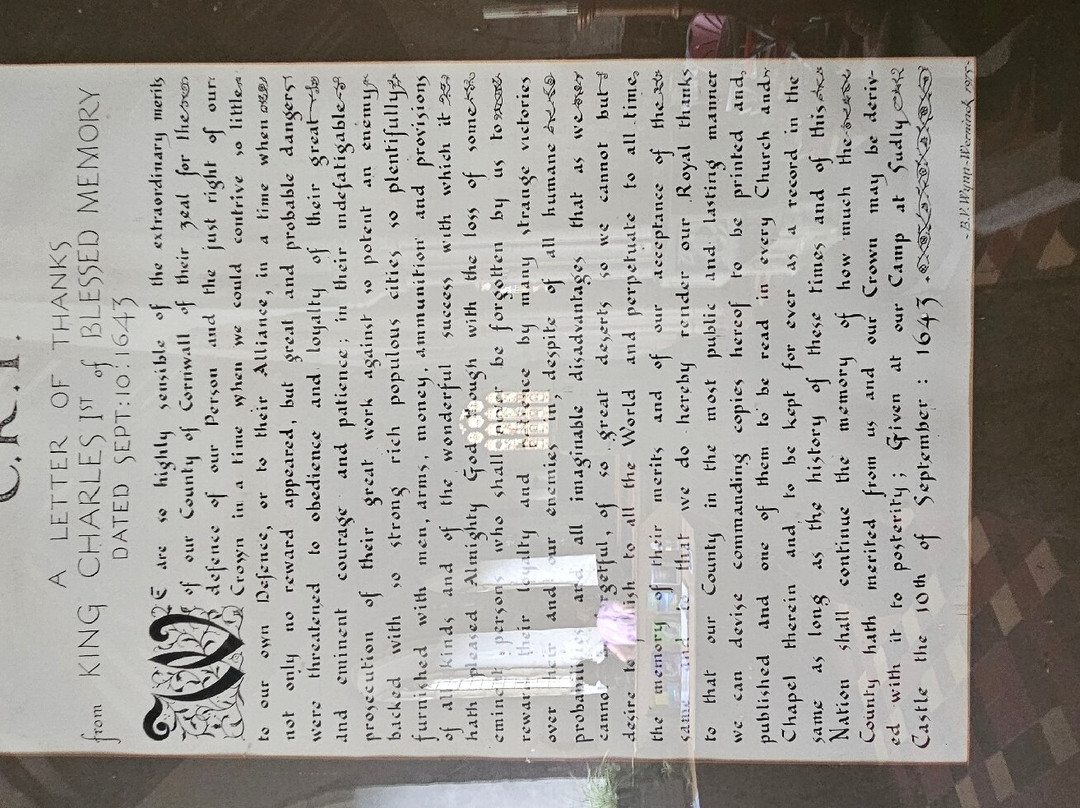 C.R.I.
A LETTER OF THANKS
from KING CHARLES IST of BLESSED MEMORY
DATED SEPT:10:1643
WE are so highly sensible of the extraordinary merits
of our County of Cornwall of their zeal for the
defence of our Person and the just right of our
Crown in a time when we could contrive so little
to our own Defence, or to their Alliance, in a time when
not only no reward appeared, but great and probable dangers
were threatened to obedience and loyalty of their great
and eminent courage and patience; in their indefatigable
prosecution of their great work against so potent an enemy
backed with so strong rich populous cities so plentifully
furnished with men, arms, money, ammunition and provisions
of all kinds and of the wonderful success with which it
hath pleased Almighty God though with the loss of some
eminent persons who shall never be forgotten by us to
reward their loyalty and patience by many strange victories
over their and our enemies, despite of all humane
probabilities and all imaginable disadvantages that as we
cannot forgetful, of so great deserts so we cannot but
desire to publish to all the World and perpetuate to all time,
the memory of their merits and of our acceptance of the
same and to that we do hereby render our Royal thanks
to that our County in the most public and lasting manner
we can devise commanding copies hereof to be printed and,
published and one of them to be read in every Church and
Chapel therein and to be kept for ever as a record in the
same as long as the history of these times and of this
Nation shall continue the memory of how much the
County hath merited from us and our Crown may be deriv-
ed with it to posterity; Given at our Camp at Sudly
Castle the 10th of September: 1643.
-B.P.Wynp-Werninck 1975-